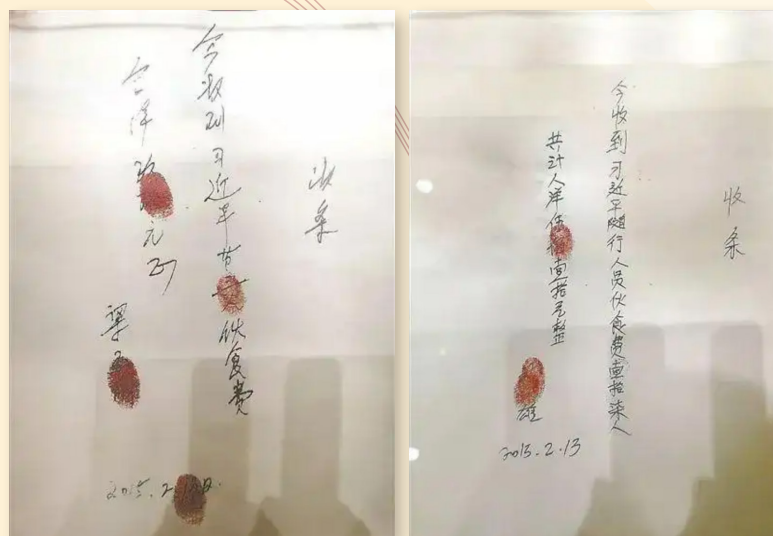 收条
今收到习近平 伙食费
合洋 元正
梁
2015.2.
收条
今收到习近平随行人员伙食费壹拾柒人
共计人洋伍 壹拾元整
雄
2015.2.13